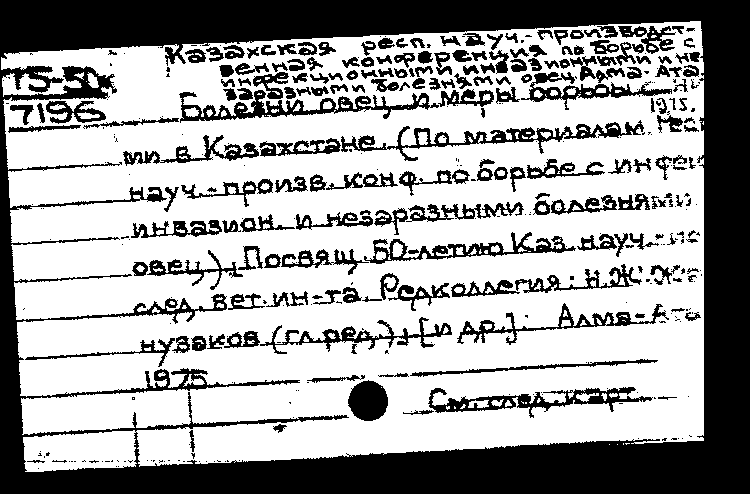 Казахская респ. науч.-производст-
венная конференция по борьбе с
инфекционными, инвазионными и не-
заразными болезнями овец, Алма-Ата.
1975.
75-50к
7196
Болезни овец и меры борьбы с ни-
ми в Казахстане. (По материалам Респ
науч.-произв. конф. по борьбе с инфек
инвазион. и незаразными болезнями
овец). Посвящ. 50-летию Каз. науч.-ис
след. вет. ин-та. Редколлегия: Н.Ж. Жа
нузаков (гл. ред.), [и др.]. Алма-Ата
1975.
См. след. карт.